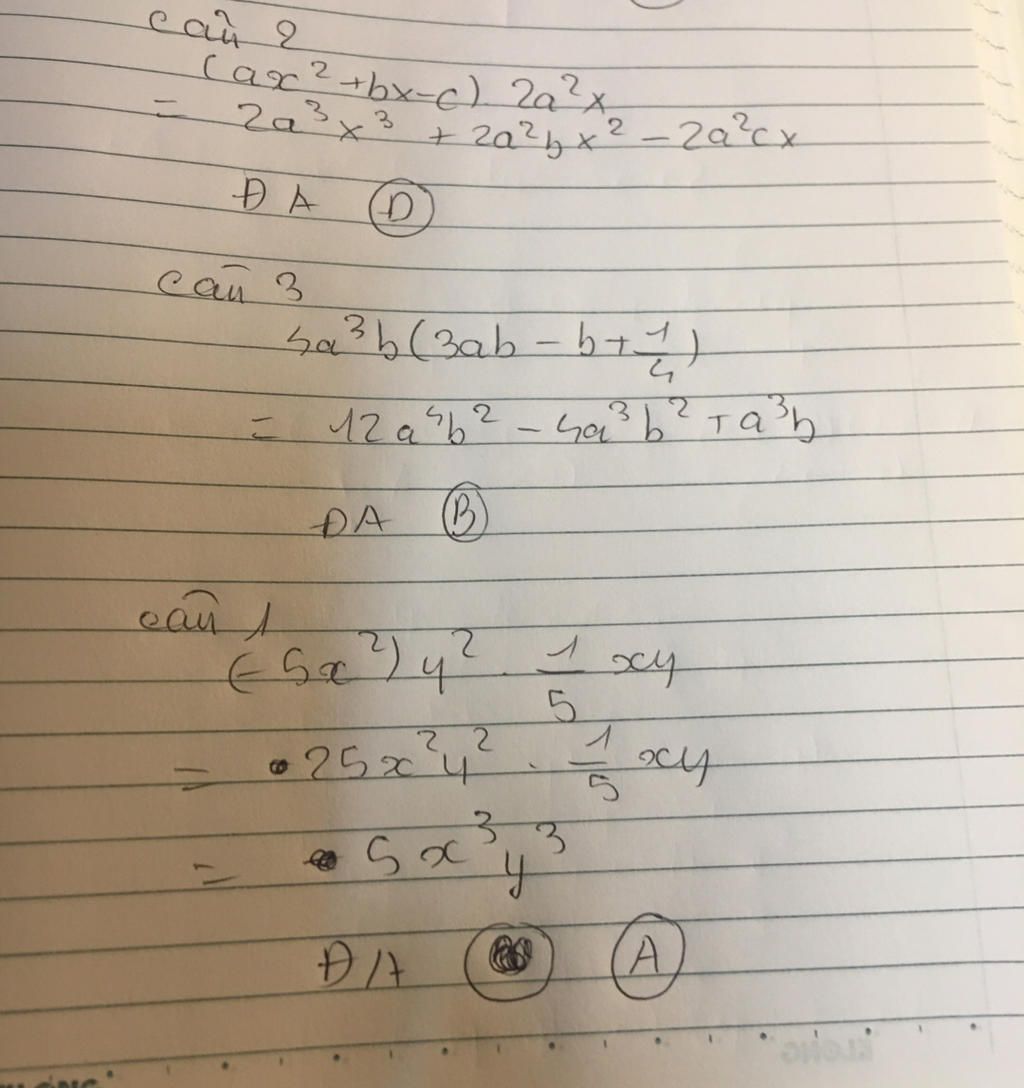 Câu 2
(ax² + bx - c) . 2a²x
= 2a³x³ + 2a²bx² - 2a²cx
ĐA D
Câu 3
4a³b(3ab - b + 1/4)
= 12a⁴b² - 4a³b² + a³b
ĐA B
Câu 1
(-5x²) y² . 1/5 xy
= 25x²y² . 1/5 xy
= 5x³y³
ĐA A